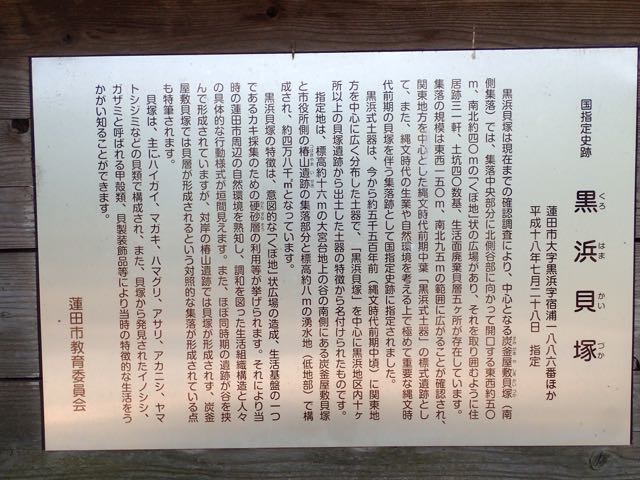 国指定史跡
黒浜貝塚
くろ はま かい づか
蓮田市大字黒浜字宿浦一八八六番ほか
平成十八年七月二十八日 指定
黒浜貝塚は現在までの確認調査により、中心となる炭釜屋敷貝塚（南
側集落）では、集落中央部分に北側谷部に向かって開口する東西約五〇
ｍ、南北約四〇ｍの「くぼ地」状の広場があり、それを取り囲むように住
居跡三一軒、土坑四〇数基、生活面廃棄貝層五ヶ所が存在しています。
集落の規模は東西一五〇ｍ、南北九五ｍの範囲に広がることが確認され、
関東地方を中心とした縄文時代前期中葉「黒浜式土器」の標式遺跡とし
て、また、縄文時代の生業や自然環境を考える上で極めて重要な縄文時
代前期の貝塚を伴う集落跡として国指定史跡に指定されました。
黒浜式土器は、今から約五千五百年前（縄文時代前期中頃）に関東地
方を中心に広く分布した土器で、「黒浜貝塚」を中心に黒浜地区内十ヶ
所以上の貝塚遺跡から出土した土器の特徴から名付けられたものです。
指定地は、標高約十六ｍの大宮台地上の谷の南側にある炭釜屋敷貝塚
と市役所側の椿山遺跡の集落部分と標高約八ｍの湧水地（低地部）で構
成され、約四万八千㎡となっています。
黒浜貝塚の特徴は、意図的な「くぼ地」状広場の造成、生活基盤の一つ
であるカキ採集のための硬砂層の利用等が挙げられます。それにより当
時の蓮田市周辺の自然環境を熟知し、調和を図った生活組織構造と人々
の具体的な行動様式が垣間見えます。また、ほぼ同時期の遺跡が谷を挟
んで形成されていますが、対岸の椿山遺跡では貝塚が形成されず、炭釜
屋敷貝塚では貝層が形成されるという対照的な集落が形成されている点
も特筆されます。
貝塚は、主にハイガイ、マガキ、ハマグリ、アサリ、アカニシ、ヤマ
トシジミなどの貝類で構成され、また、貝塚から発見されたイノシシ、
ガザミと呼ばれる甲殻類、貝製装飾品等により当時の特徴的な生活をう
かがい知ることができます。
蓮田市教育委員会